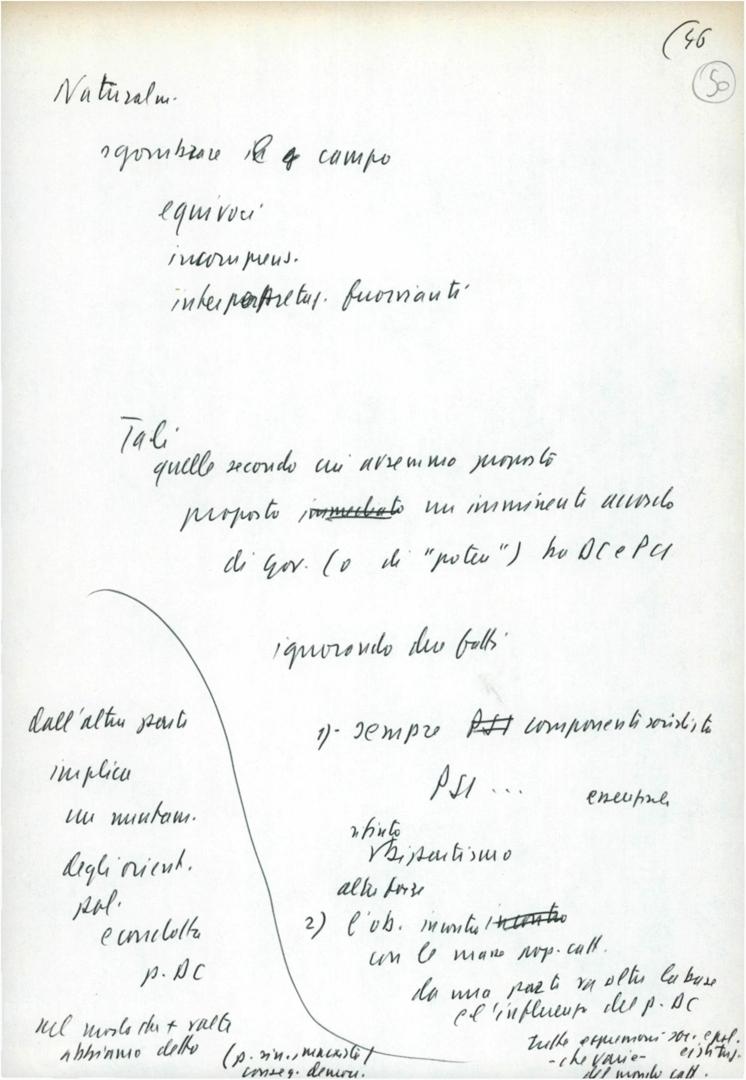 (46
50
Naturalm.
sgombrare il campo
equivoci
incomprens.
interpretaz. fuorvianti
Tali
quelle secondo cui avremmo proposto
proposto immediato un imminente accordo
di Gov. (o di "potere") tra DC e PCI
ignorando due fatti
1)- sempre PSI componenti socialista
PSI ... essenziale
rifiuto
bipartitismo
altre forze
2) l'ob. incontro incontro
con le masse pop. catt.
da una parte va oltre la base
e l'influenza del p. DC
tutte espressioni soc. e pol.
- che varie - esistenz.
del mondo catt.
dall'altra parte
implica
un mutam.
degli orient.
pol.
e condotta
p. DC
nel modo che + volte
abbiamo detto
conseg. democr.